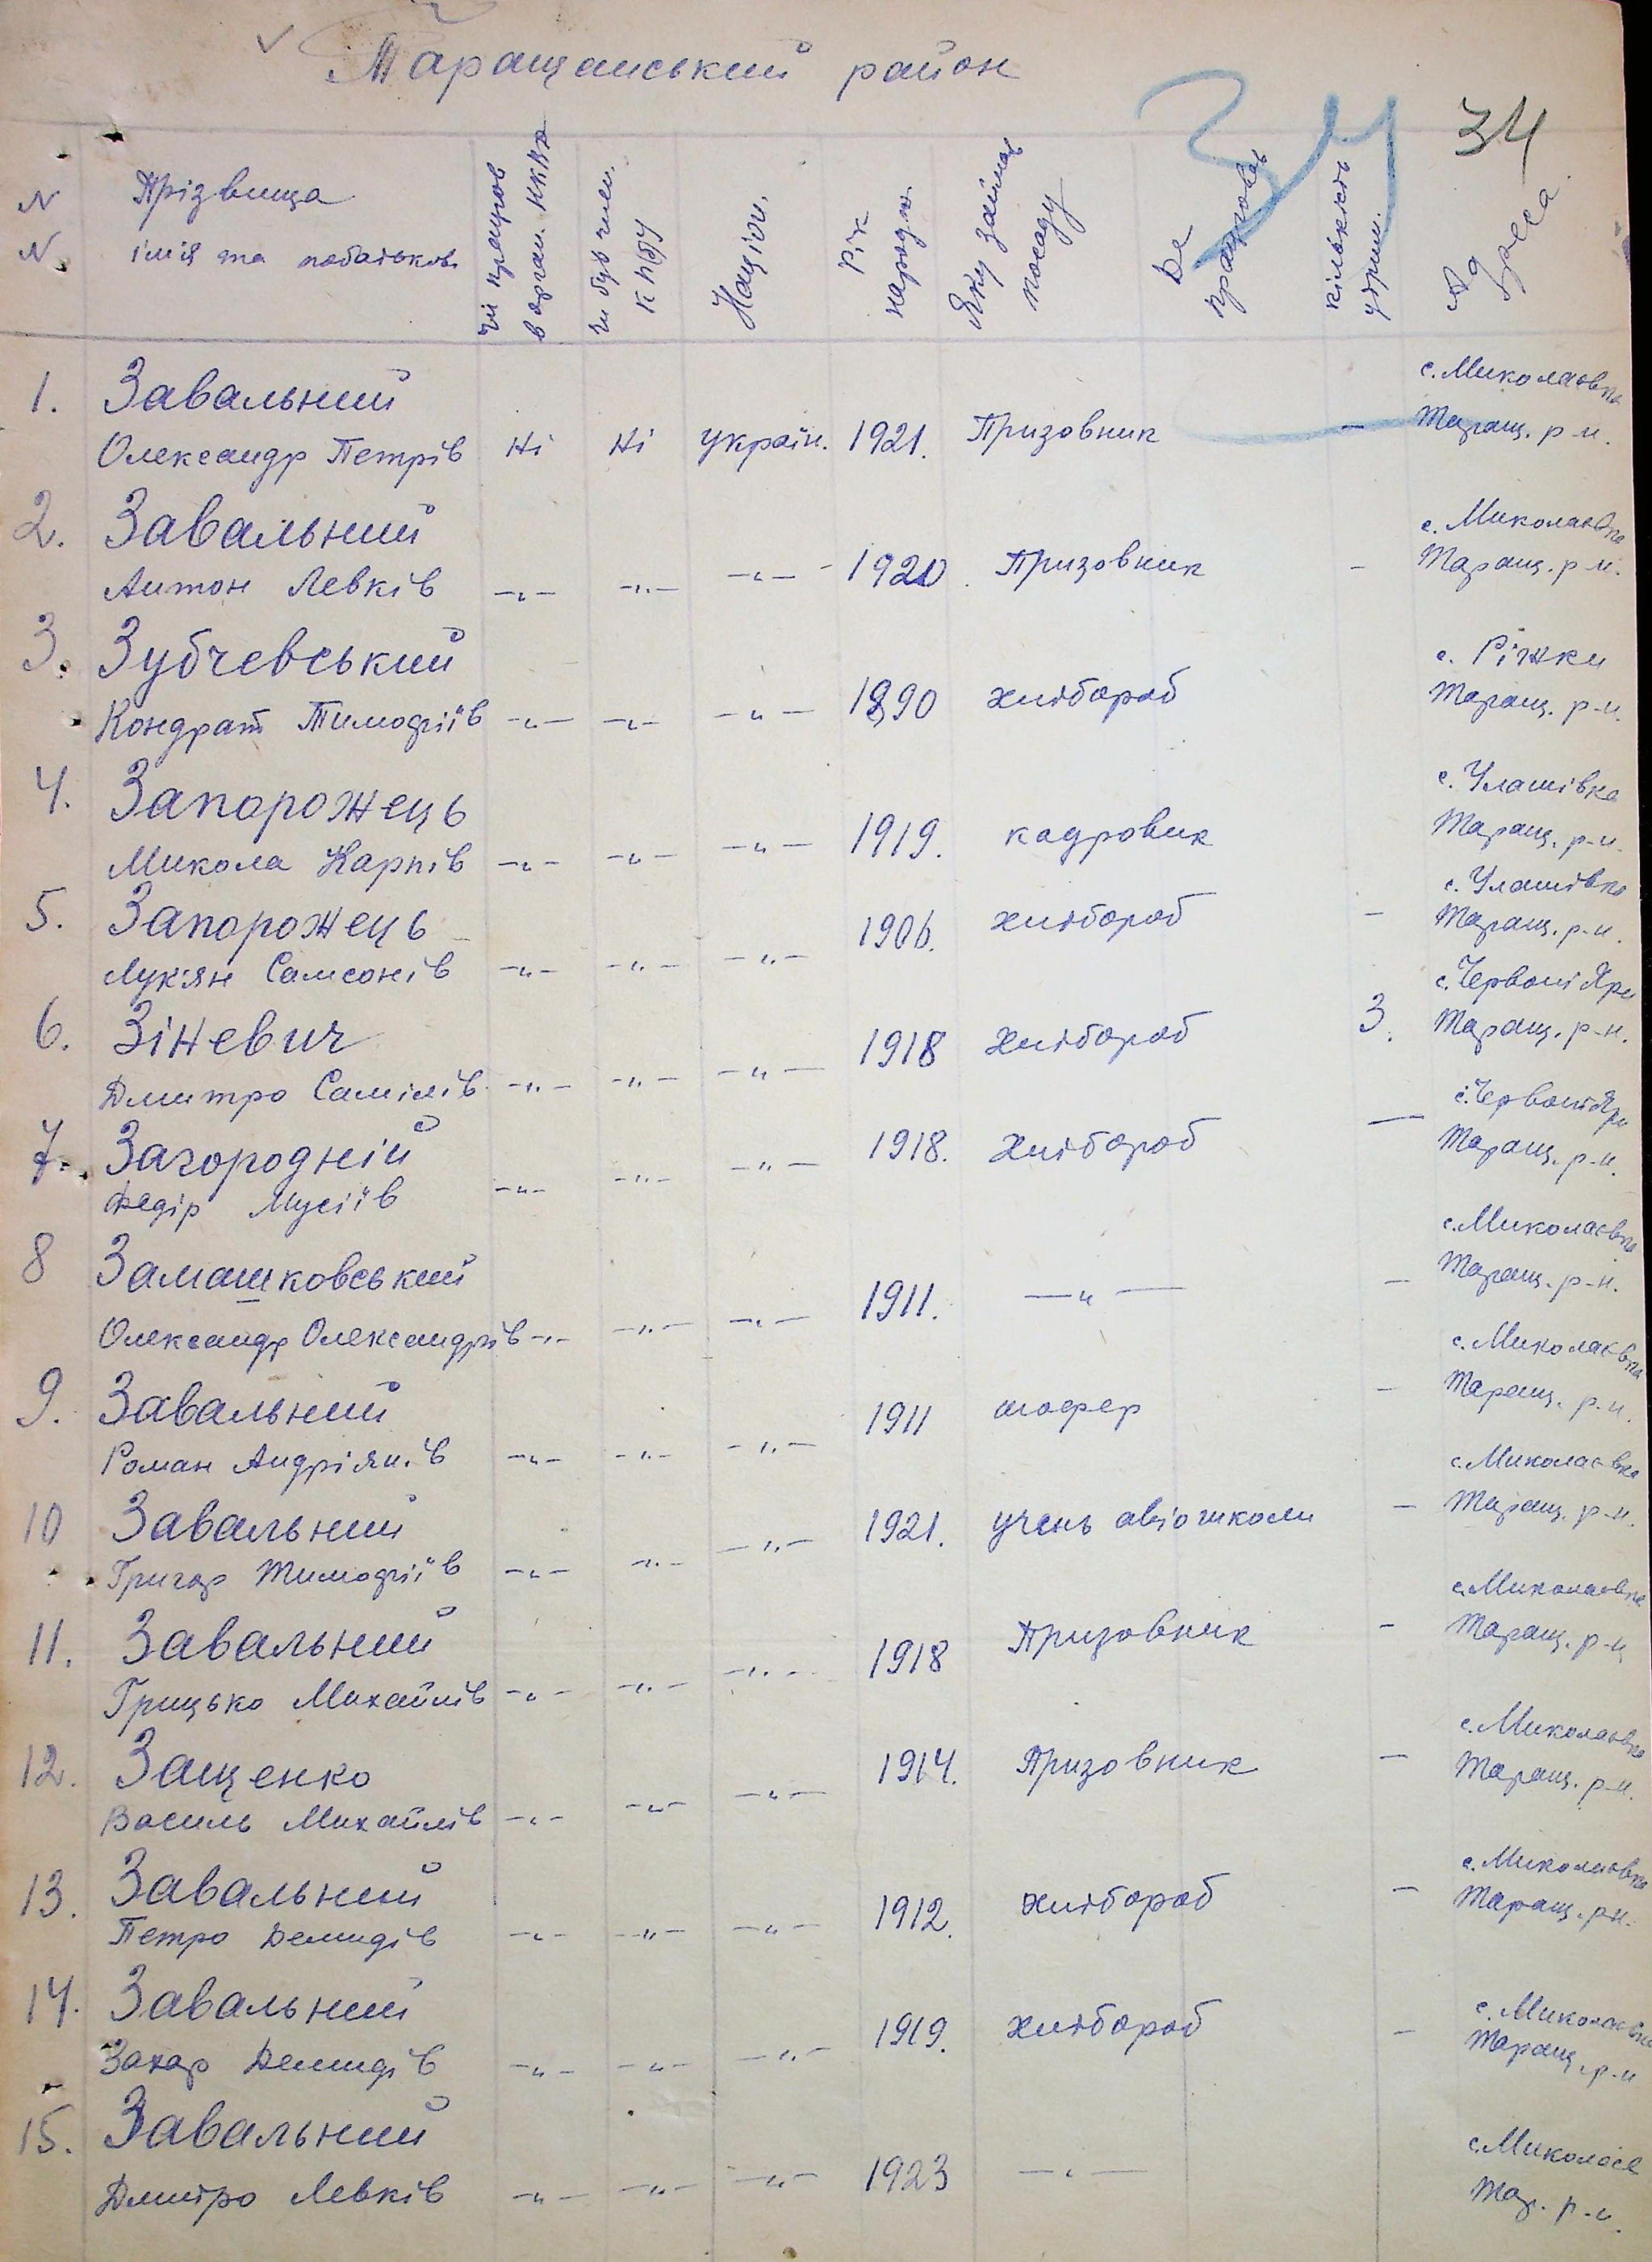 Таращанський район
34
34
N N
Прізвища
імія та побатькові
чи працював в орган. НКВД
чи був член. КП(б)У
Націон.
Рік народж.
Яку займав посаду
Де працював
кількість утрим.
Адреса
1. Завальний с. Миколаєвка
Олександр Петрів Ні Ні україн. 1921. Призовник - Таращ. р-н.
2. Завальний с. Миколаєвка
Антон Левків -"- -"- -"- 1920. Призовник - Таращ. р-н.
3. Зубчевський с. Ріжки
Кондрат Тимофіїв -"- -"- -"- 1890 хлібороб Таращ. р-н.
4. Запорожець с. Улашівка
Микола Карпів -"- -"- -"- 1919. кадровик Таращ. р-н.
5. Запорожець с. Улашівка
Лукян Самсонів -"- -"- -"- 1906. хлібороб - Таращ. р-н.
6. Зіневич с. Червоні Яри
Дмитро Самілів -"- -"- -"- 1918 хлібороб 3. Таращ. р-н.
7. Загородній с. Червоні Яри
Федір Мусіїв -"- -"- -"- 1918. хлібороб — Таращ. р-н.
8 Замашковський с. Миколаєвка
Олександр Олександрів -"- -"- -"- 1911. -"- - Таращ. р-н.
9. Завальний с. Миколаєвка
Роман Андріянів -"- -"- -"- 1911 шофер - Таращ. р-н.
10 Завальний с. Миколаєвка
Григор Тимофіїв -"- -"- -"- 1921. учень авіошколи - Таращ. р-н.
11. Завальний с. Миколаєвка
Грицько Михайлів -"- -"- -"- 1918 Призовник - Таращ. р-н
12. Защенко с. Миколаєвка
Василь Михайлів -"- -"- -"- 1914. Призовник - Таращ. р-н.
13. Завальний с. Миколаєвка
Петро Демидів -"- -"- -"- 1912. хлібороб - Таращ. р-н.
14. Завальний с. Миколаєвка
Захар Демидів -"- -"- -"- 1919. хлібороб - Таращ. р-н
15. Завальний с. Миколаєв
Дмитро Левків -"- -"- -"- 1923 -"- Тар. р-н.